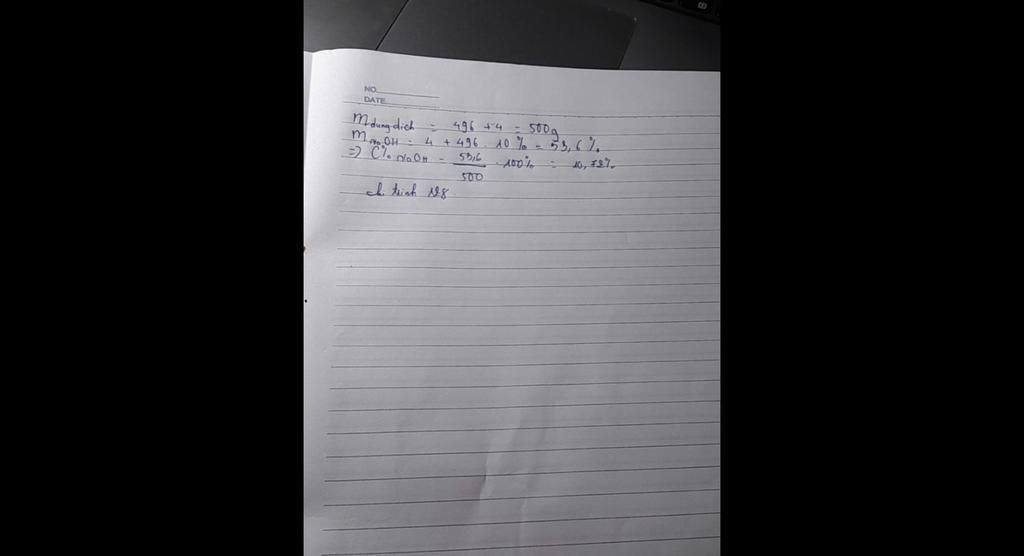 NO
DATE
m dung dịch = 496 + 4 = 500g
m NaOH = 4 + 496 . 10 % = 53,6 %
=> C% NaOH = 53,6 / 500 . 100% = 10,72%